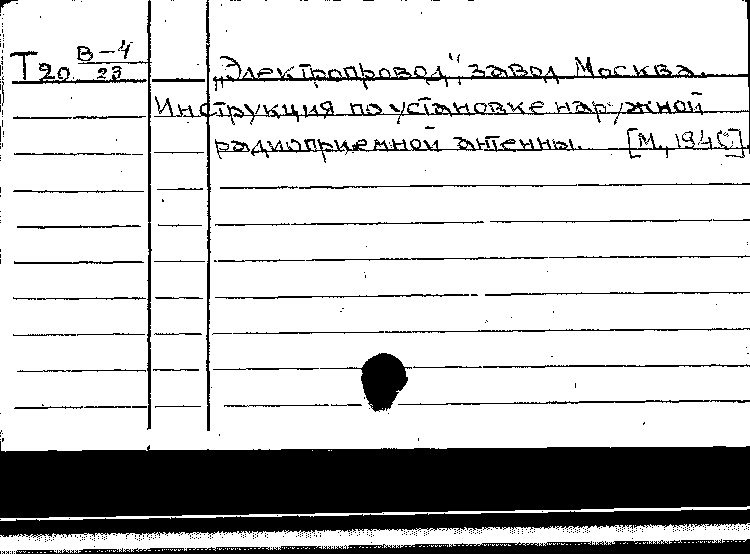 Т20 В-4/23 „Электропровод", завод Москва.
Инструкция по установке наружной
радиоприемной антенны. [М., 1940].